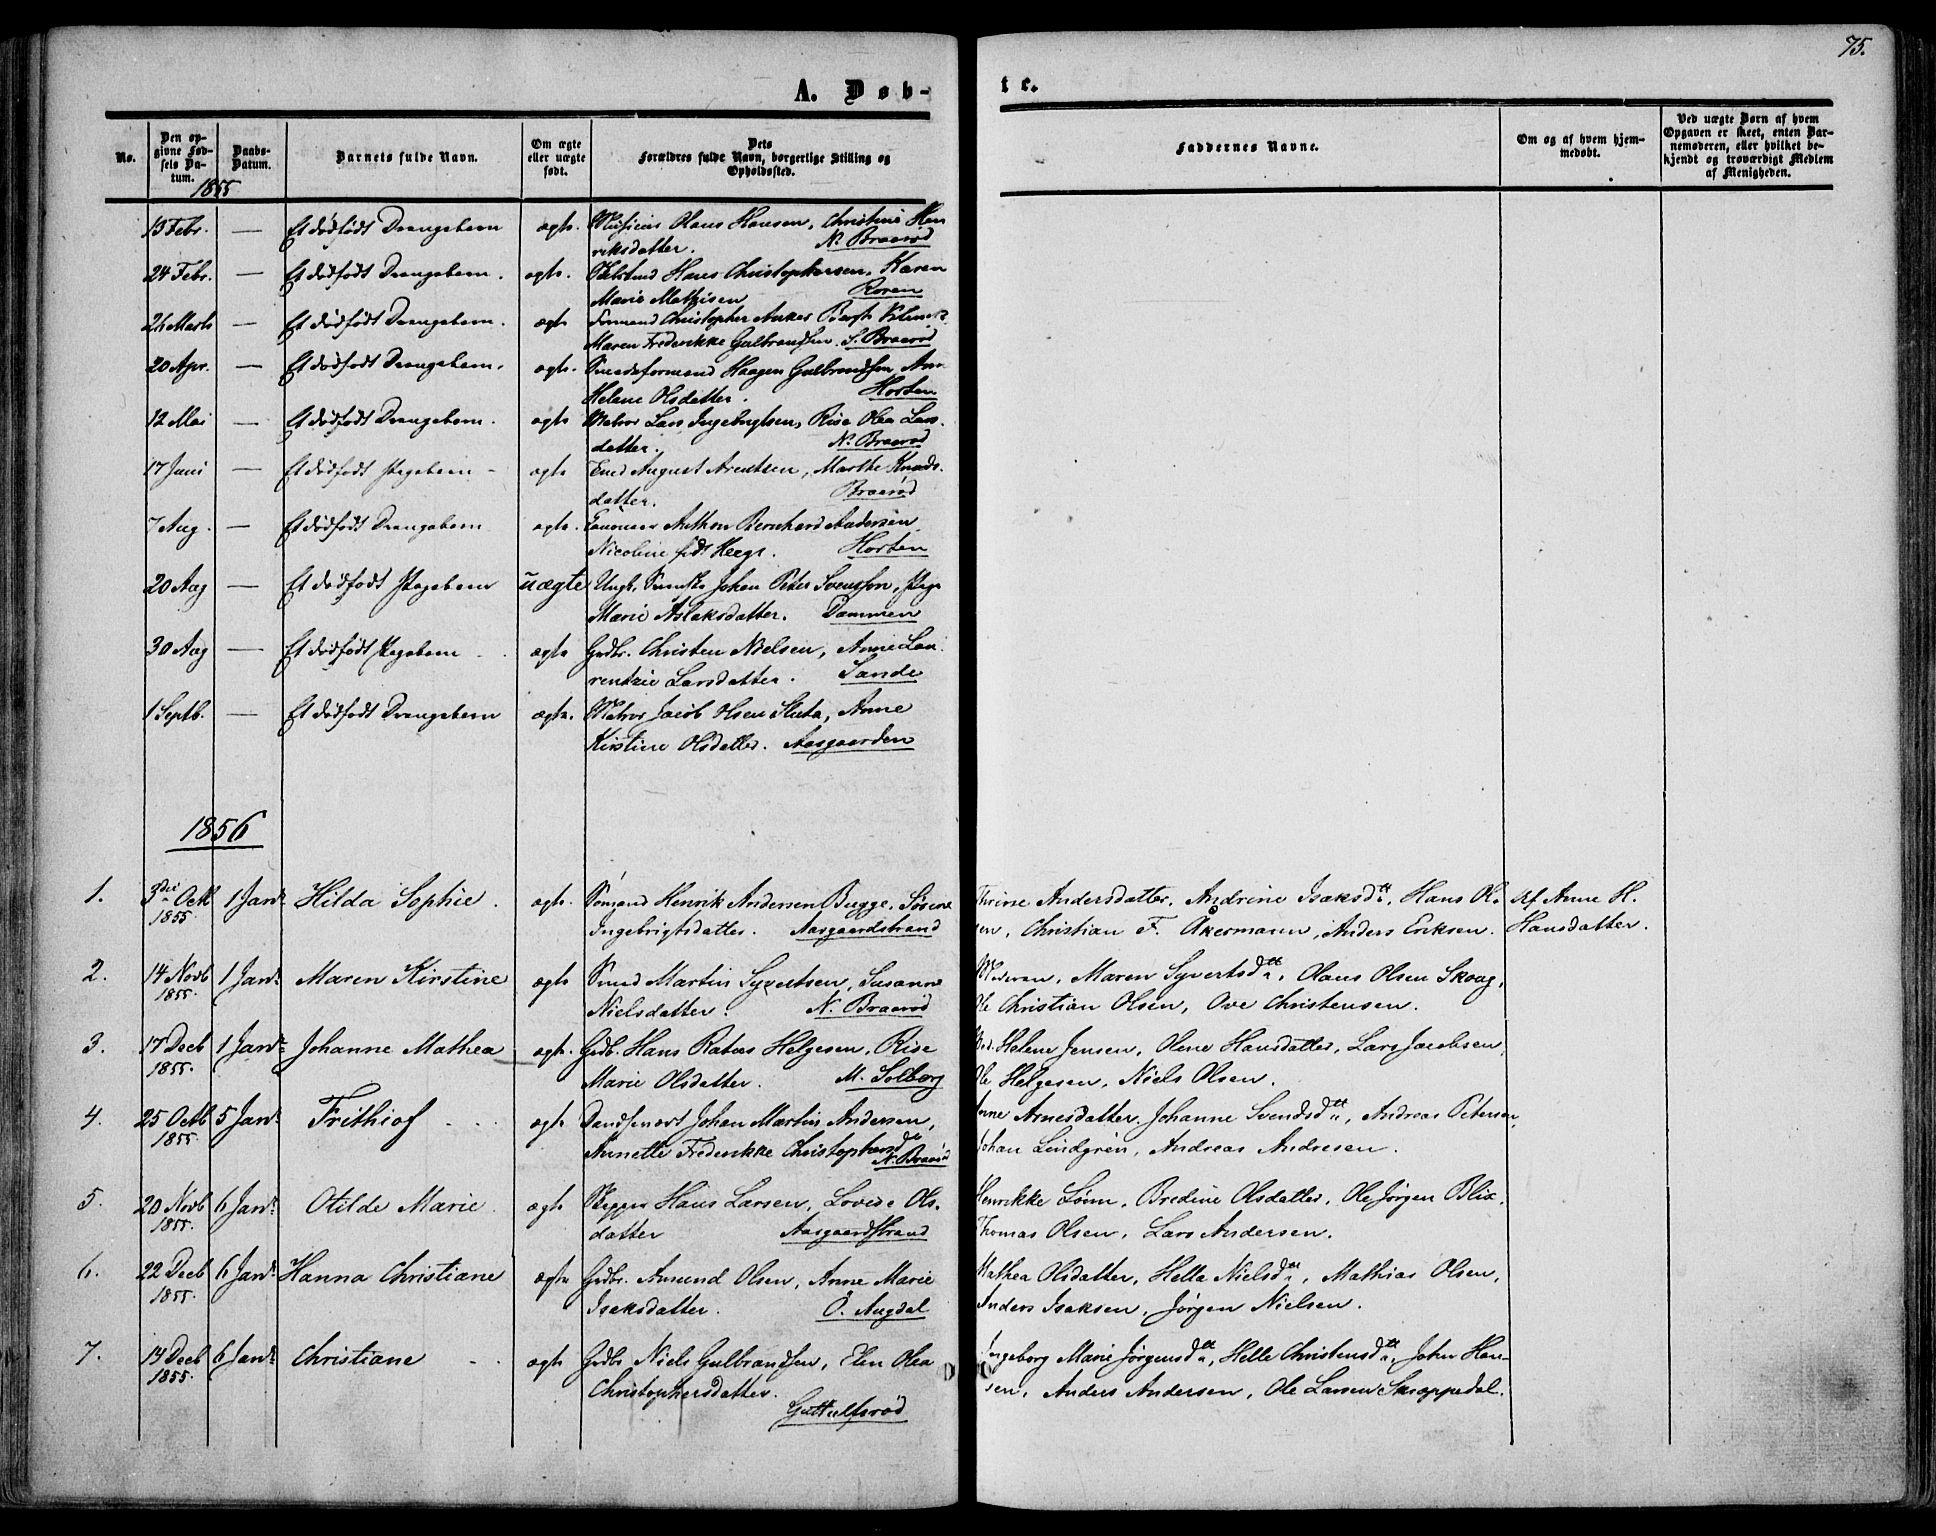 75.
A. Døb-
te.
No.
Den op-
givne Fød-
sels Da-
tum.
Daabs-
Datum.
Barnets fulde Navn.
Om ægte
eller uægte
født.
Dets
Forældres fulde Navn, borgerlige Stilling og
Opholdssted.
Faddernes Navne.
Om og af hvem hjem-
medøbt.
Ved uægte Børn af hvem
Opgaven er skeet, enten Bar-
nemoderen, eller hvilket be-
kjendt og troværdigt Medlem
af Menigheden.
1855
13 Febr. — Et dødfødt Drengebarn ægte. Hans Hansen, Christine Hen
riksdatter. N. Braarød
24 Febr. — Et dødfødt Drengebarn. ægte. Hans Christophersen, Karen
Marie Mathisen Roren
26 Marts — Et dødfødt Drengebarn. ægte Formand Christopher Anker Bergh
Maren Frederikke Gulbrandsen. S. Braarød
20 Apr. — Et dødfødt Drengebarn. ægte. Smedeformand Haagen Gulbrandsen, Ann
Helene Olsdatter. Horten
12 Mai — Et dødfødt Drengebarn. ægte Matros Lars Ingebrigtsen, Rise Olea Lars-
datter. N. Braarød
17 Juni — Et dødfødt Pigebarn - ægte August Arentsen, Marthe Knuds-
datter. Braarød
7 Aug. — Et dødfødt Drengebarn ægte. Anthon Bernhard Andersen
Nicoline født Heegs. Horten
20 Aug — Et dødfødt Pigebarn uægte Ungk. Svenske Johan Peter Svenssøn, Pige
Marie Aslaksdatter. Dammen
30 Aug — Et dødfødt Pigebarn ægte Grdbr. Christen Nielsen, Anne Lau-
rentzie Larsdatter. Sande
1 Septb. — Et dødfødt Drengebarn ægte. Matros Jacob Olsen, Anne
Kirstine Olsdatter. Aasgaarden
1856
1. 3die Octb 1855. 1 Janr. Hilda Sophie. ægte. Sømand Henrik Andersen Bugge, Sørine
Ingebrigtsdatter. Aasgaardstrand
Thrine Andersdatter, Andrine Isaksdtr, Hans Ol-
sen, Christian F. Åkermann, Anders Eriksen.
Af Anne H.
Hansdatter.
2. 14 Novb 1855. 1 Janr. Maren Kirstine ægte Smed Martin Syvertsen, Susanne
Nielsdatter. N. Braarød
Moderen, Maren Syvertsdtr, Hans Olsen Skoag,
Ole Christian Olsen, Ove Christensen.
3. 17 Decb 1855. 1 Janr. Johanne Mathea ægte. Grdb. Hans Rasmus Helgesen, Rise
Marie Olsdatter. M. Solberg
Helene Jensen, Olene Hansdatter, Lars Jacobsen,
Ole Helgesen, Niels Olsen.
4. 25 Octb 1855. 5 Janr. Frithiof ægte Johan Martin Andersen,
Annette Frederikke Christophersd. N. Braarød
Anne Arnesdatter, Johanne Svendsdtr, Andreas Petersen,
Johan Lindgrén, Andreas Andresen.
5. 20 Novb 1855. 6 Janr. Otilde Marie. ægte Skipper Hans Larsen, Lovise Ols-
datter Aasgaardstrand
Henrikke Lønn, Bredine Olsdatter, Ole Jørgen Blix,
Thomas Olsen, Lars Andersen.
6. 22 Decb 1855. 6 Janr. Hanna Christiane ægte Grdbr. Amund Olsen, Anne Marie
Isaksdatter. Ö. Augdal
Mathea Olsdatter, Hella Nielsdtr, Mathias Olsen,
Anders Isaksen, Jørgen Nielsen.
7. 14 Decb 1855. 6 Janr. Christiane ægte Grdbr Niels Gulbrandsen, Elen Olea
Christophersdatter.
Guttulfsrød
Ingeborg Marie Jørgensdtr, Helle Christensdtr, John Han-
sen, Anders Andersen, Ole Larsen Snoppedal.